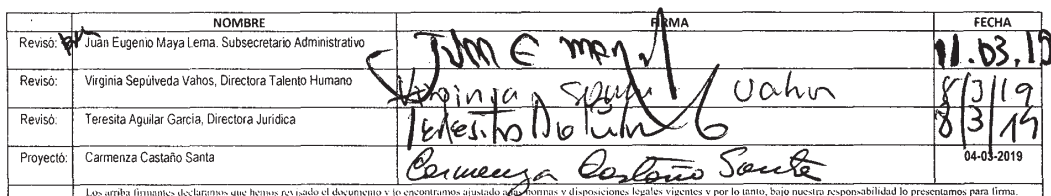 NOMBRE FIRMA FECHA
Revisó: Juan Eugenio Maya Lema. Subsecretario Administrativo JUAN E MAYA 11.03.19
Revisó: Virginia Sepúlveda Vahos, Directora Talento Humano Virginia Vahos 8/3/19
Revisó: Teresita Aguilar García, Directora Jurídica Teresita 8/3/19
Proyectó: Carmenza Castaño Santa Carmenza Castaño Santa 04-03-2019
Los arriba firmantes declaramos que hemos revisado el documento y lo encontramos ajustado a las normas y disposiciones legales vigentes y por lo tanto, bajo nuestra responsabilidad lo presentamos para firma.